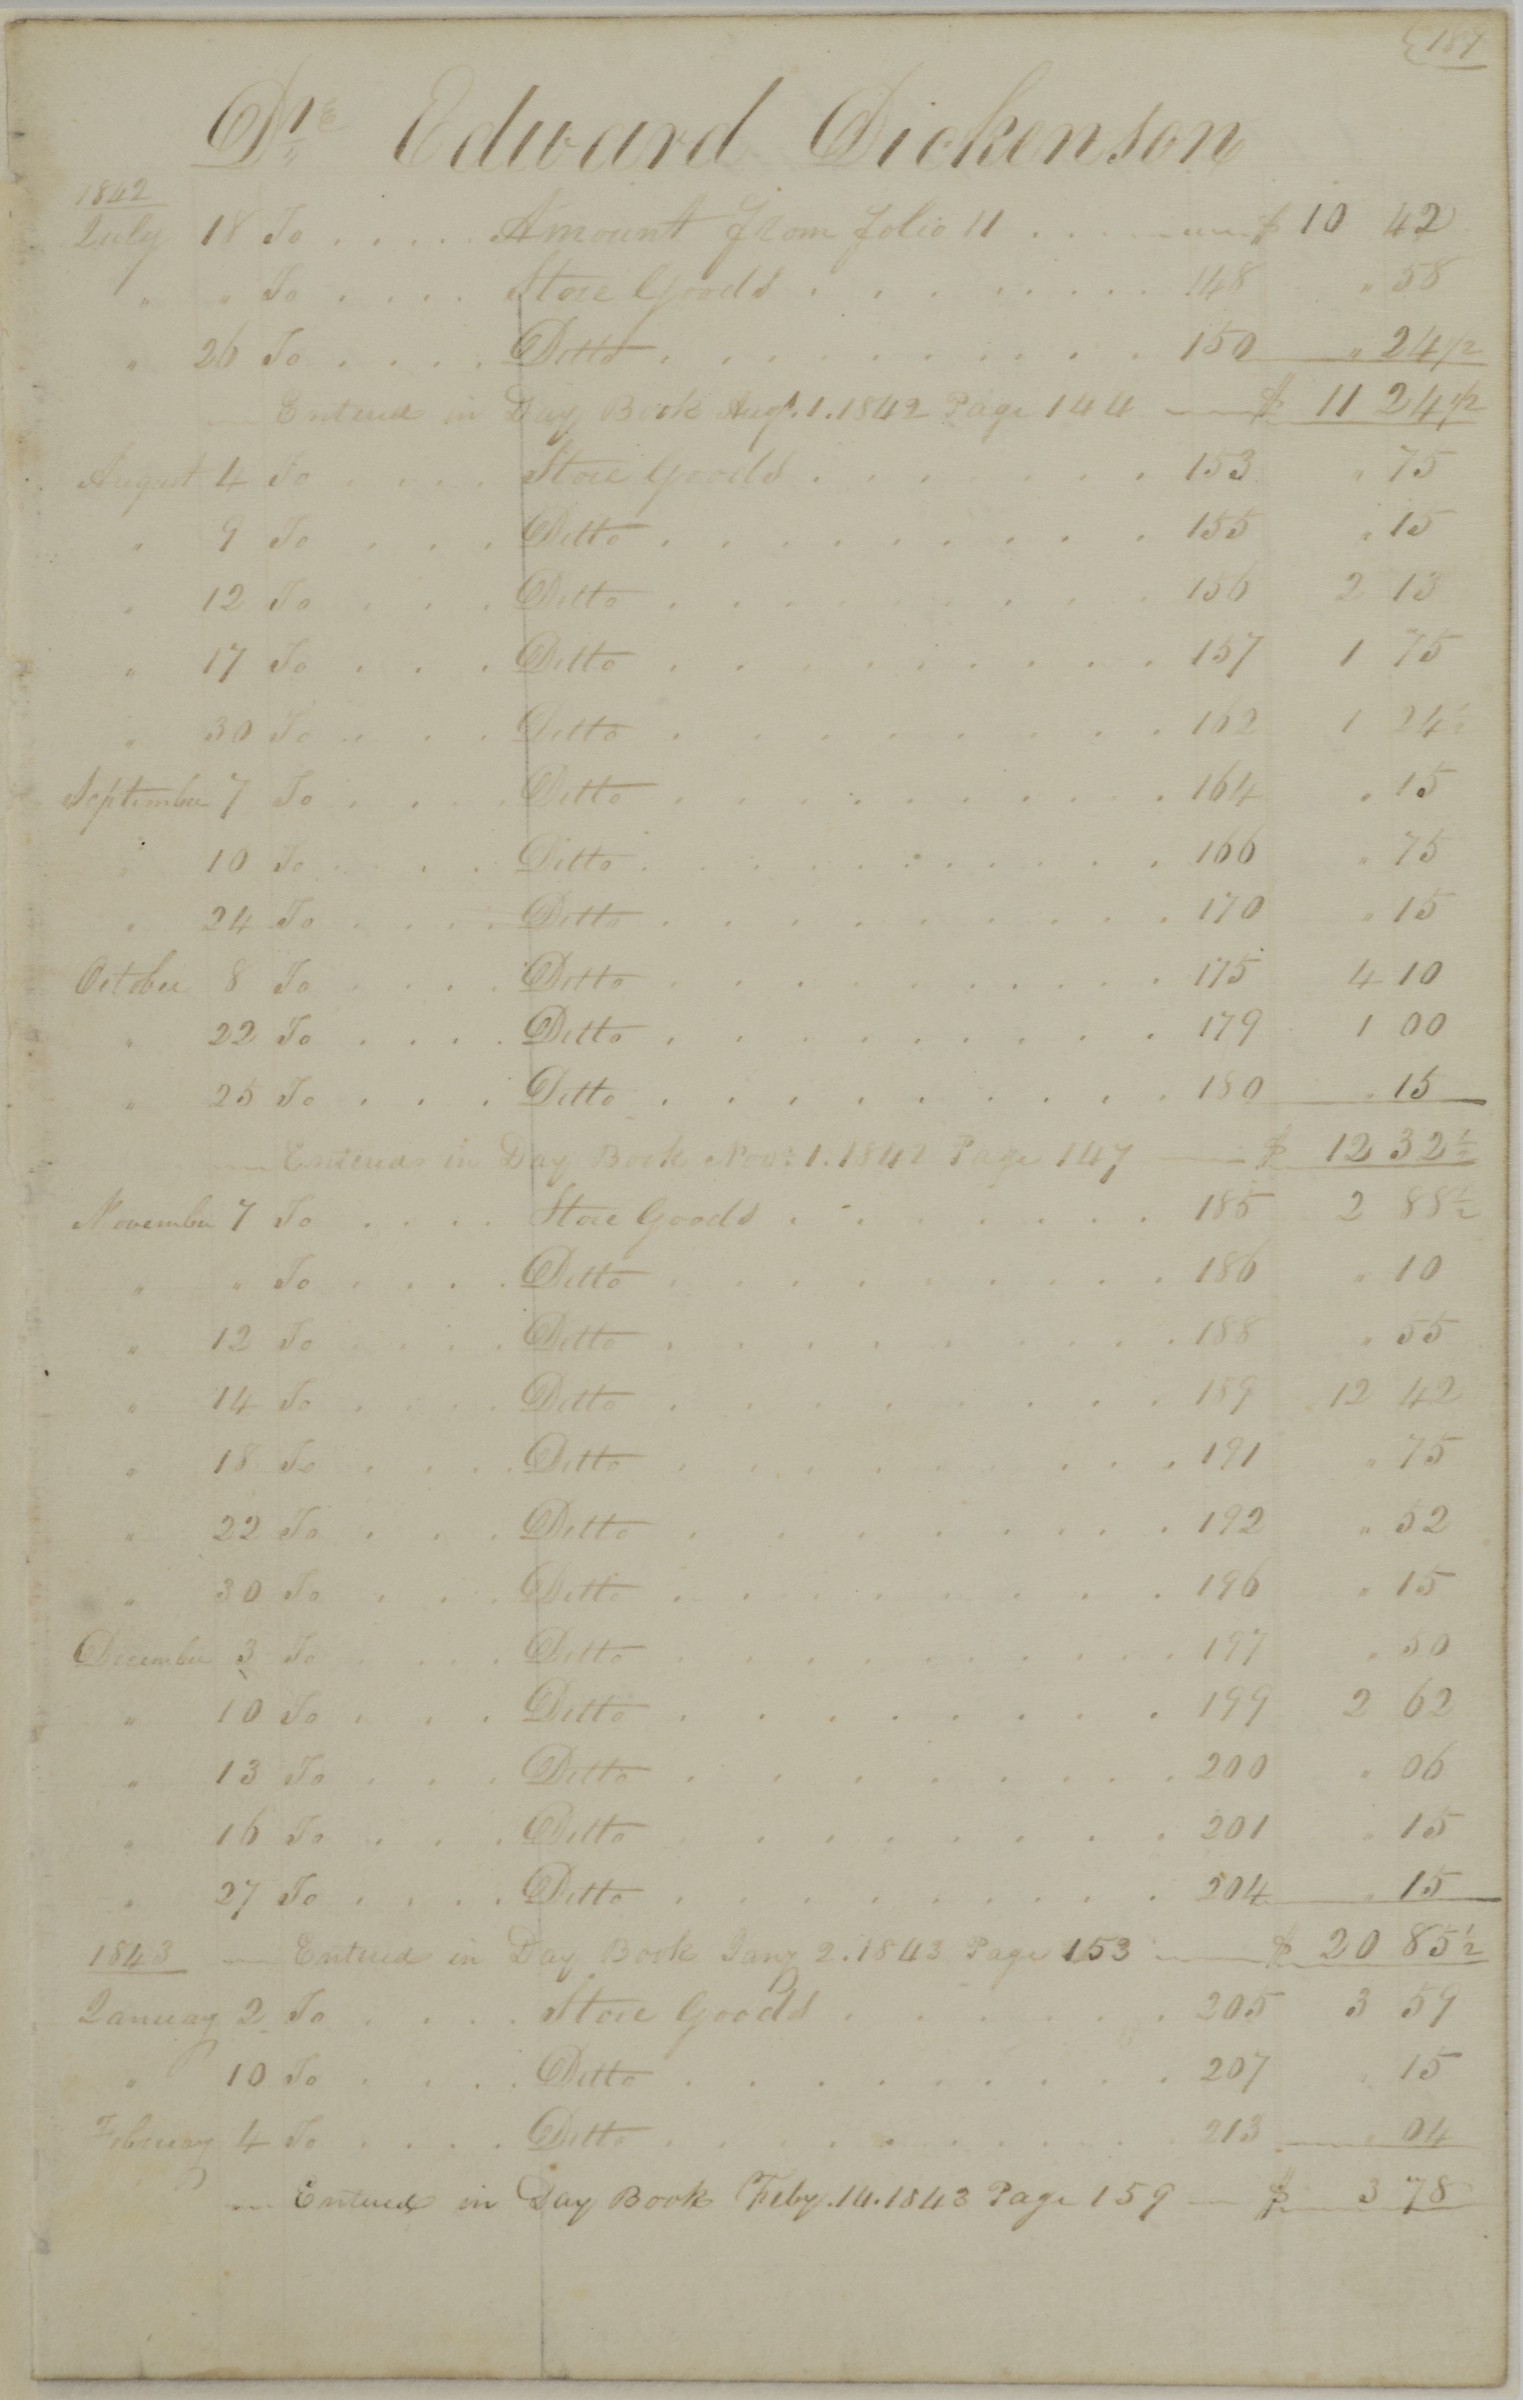 189
Dr. Edward Dickenson
1842
July 18 To . . . . . Amount from folio 11 . . . . $ 10 42
" " To . . . . Store Goods . . . . . . . . 148 " 58
" 26 To . . . . Ditto . . . . . . . . . 150 " 24 1/2
— Entered in Day Book Augt. 1. 1842 Page 144 — $ 11 24 1/2
August 4 To . . . . Store Goods . . . . . . . 153 " 75
" 9 To . . . . Ditto . . . . . . . . . 155 " 15
" 12 To . . . . Ditto . . . . . . . . . 156 2 13
" 17 To . . . . Ditto . . . . . . . . . 157 1 75
" 30 To . . . . Ditto . . . . . . . . . 162 1 24 1/2
September 7 To . . . . Ditto . . . . . . . . . 164 " 15
" 10 To . . . . Ditto . . . . . . . . . 166 " 75
" 24 To . . . . Ditto . . . . . . . . . 170 " 15
October 8 To . . . . Ditto . . . . . . . . . 175 4 10
" 22 To . . . . Ditto . . . . . . . . . 179 1 00
" 25 To . . . . Ditto . . . . . . . . . 180 " 15
— Entered in Day Book Novr. 1. 1842 Page 147 — $ 12 32 1/2
November 7 To . . . . Store Goods . . . . . . . 185 2 88 1/2
" " To . . . . Ditto . . . . . . . . . 186 " 10
" 12 To . . . . Ditto . . . . . . . . . 188 " 55
" 14 To . . . . Ditto . . . . . . . . . 189 12 42
" 18 To . . . . Ditto . . . . . . . . . 191 " 75
" 22 To . . . . Ditto . . . . . . . . . 192 " 52
" 30 To . . . . Ditto . . . . . . . . . 196 " 15
December 3 To . . . . Ditto . . . . . . . . . 197 " 50
" 10 To . . . . Ditto . . . . . . . . . 199 2 62
" 13 To . . . . Ditto . . . . . . . . . 200 " 06
" 16 To . . . . Ditto . . . . . . . . . 201 " 15
" 27 To . . . . Ditto . . . . . . . . . 204 " 15
1843 — Entered in Day Book Jany 2. 1843 Page 153 — $ 20 85 1/2
January 2 To . . . . Store Goods . . . . . . 205 3 59
" 10 To . . . . Ditto . . . . . . . . . 207 " 15
February 4 To . . . . Ditto . . . . . . . . . 213 " 04
— Entered in Day Book Feby. 14. 1843 Page 159 — $ 3 78